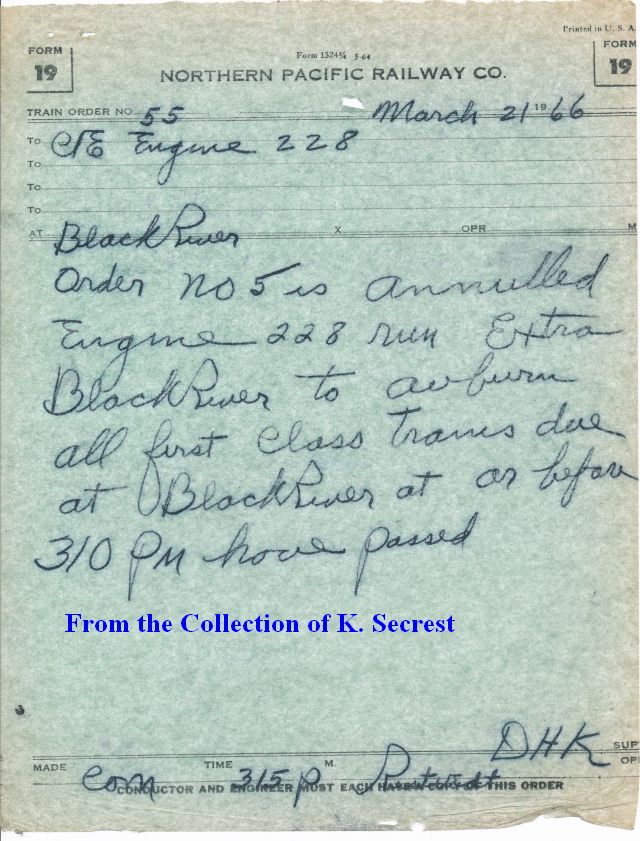 Printed in U. S. A.
FORM 19
Form 1324¾ 5-64
FORM 19
NORTHERN PACIFIC RAILWAY CO.
TRAIN ORDER NO. 55 March 21 1966
To C/E Engine 228
To
To
To
AT Black River X OPR. M
Order No 5 is annulled
Engine 228 run Extra
Black River to auburn
all first class trains due
at Black River at or before
310 PM have passed
From the Collection of K. Secrest
DHK SUP
MADE Com TIME 315 P M. OP
CONDUCTOR AND ENGINEER MUST EACH HAVE A COPY OF THIS ORDER